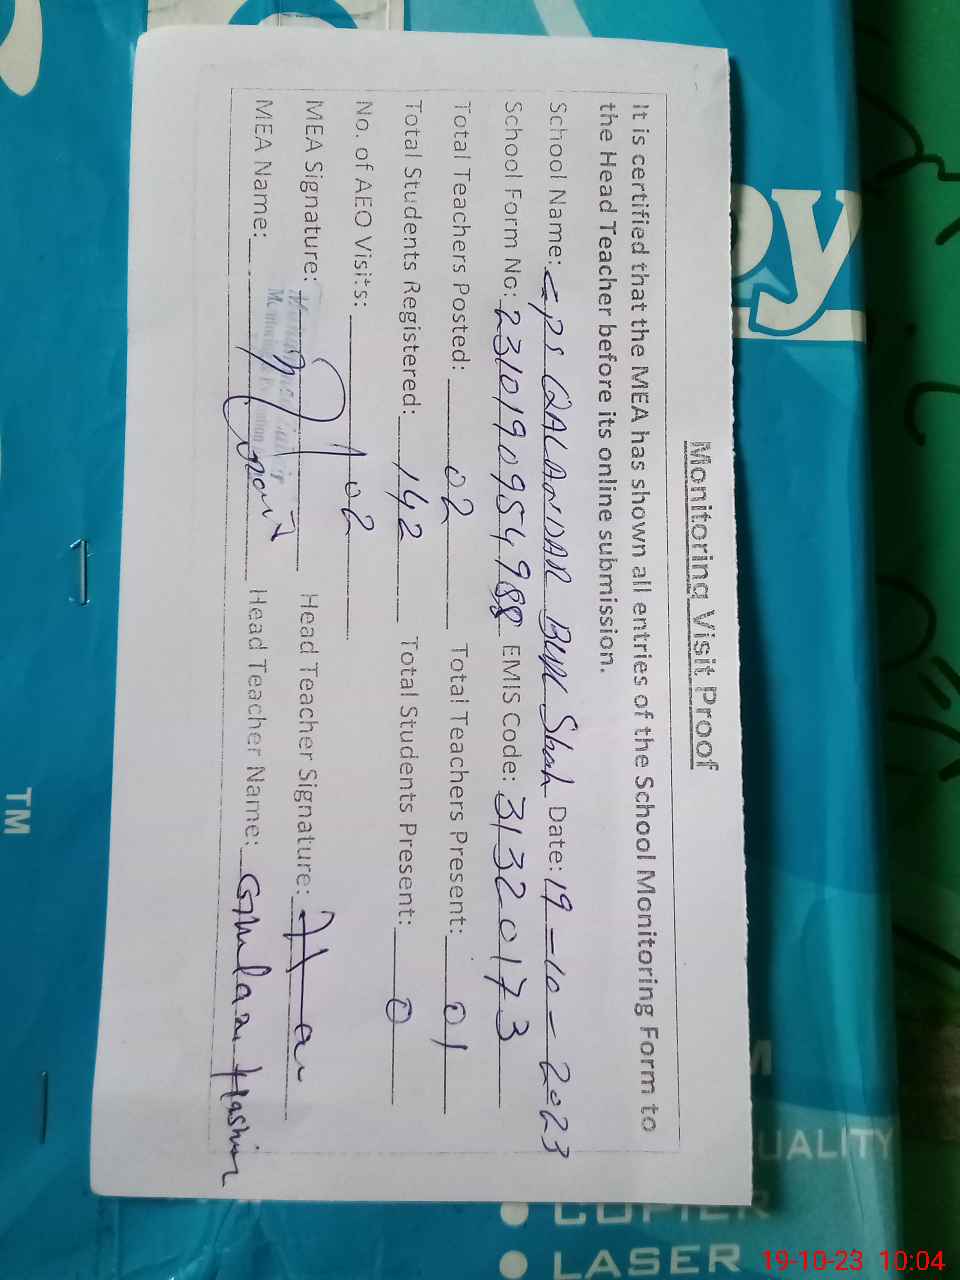 Monitoring Visit Proof
It is certified that the MEA has shown all entries of the School Monitoring Form to
the Head Teacher before its online submission.
School Name: GPS QALANDAR BUX Shah Date: 19-10-2023
School Form No: 2310190954988 EMIS Code: 31320173
Total Teachers Posted: 02 Total Teachers Present: 01
Total Students Registered: 142 Total Students Present: 0
No. of AEO Visits: 02
MEA Signature: Head Teacher Signature:
MEA Name: Head Teacher Name: Ghulam Hashim
py
TM
QUALITY
COPIER
LASER
19-10-23 10:04